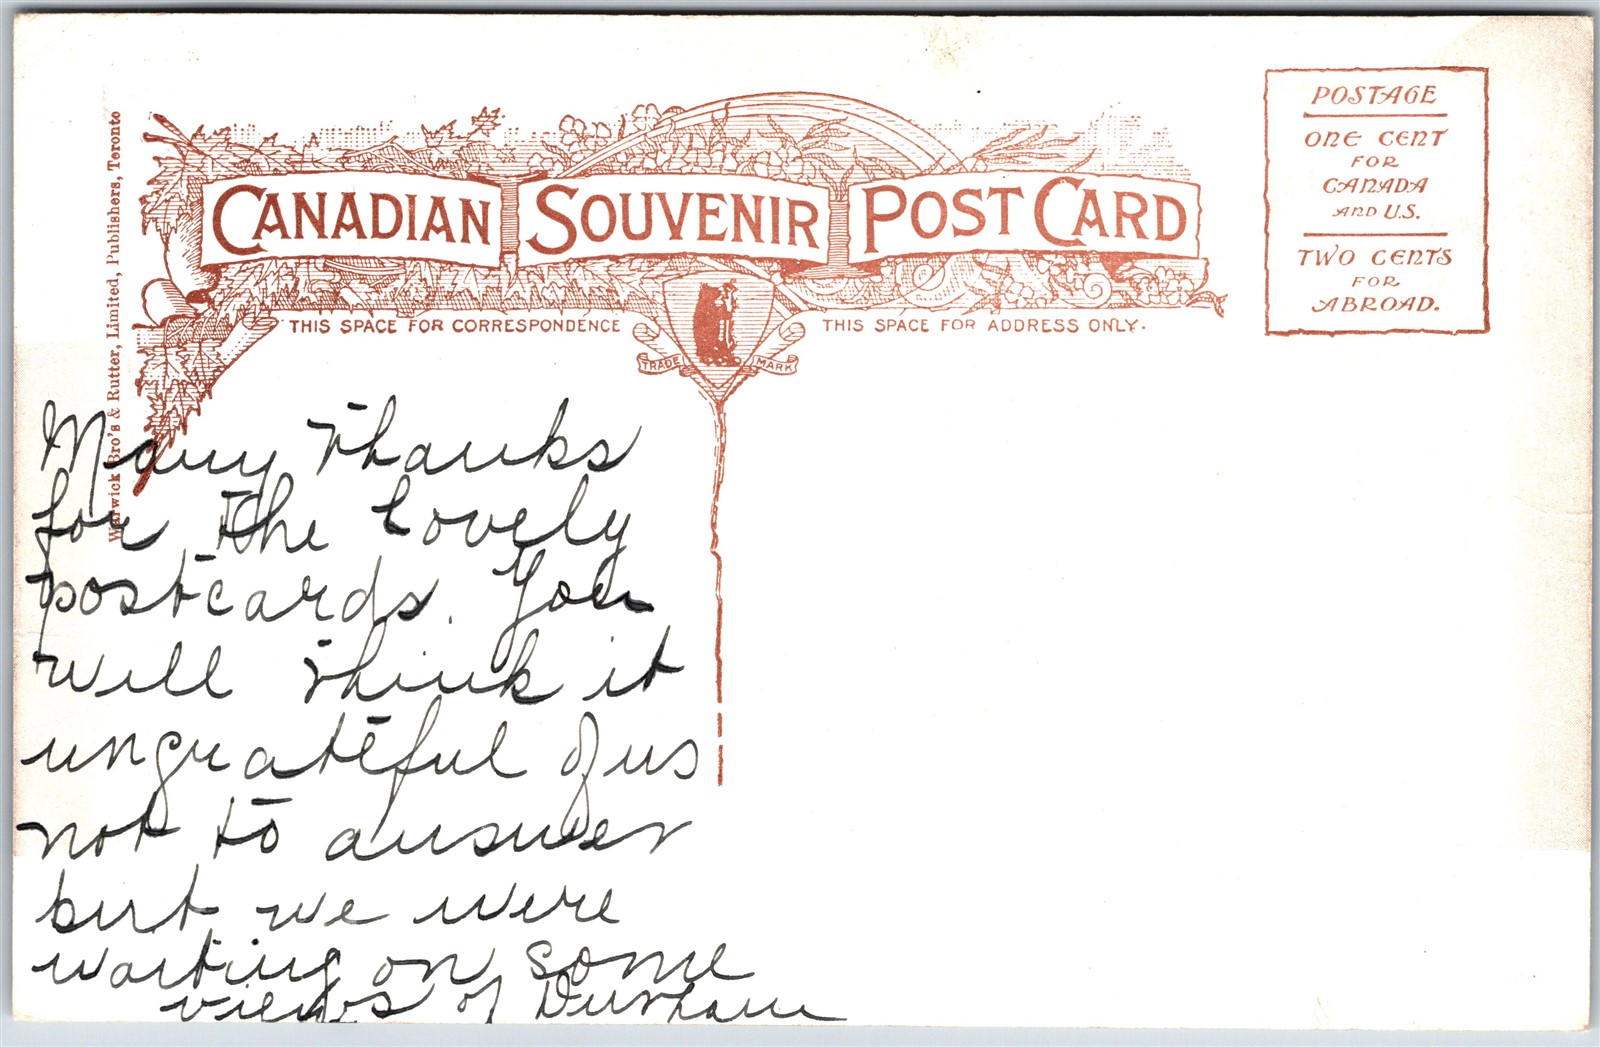 CANADIAN SOUVENIR POST CARD
THIS SPACE FOR CORRESPONDENCE
THIS SPACE FOR ADDRESS ONLY.
TRADE MARK
POSTAGE
ONE CENT
FOR
CANADA
AND U.S.
TWO CENTS
FOR
ABROAD.
Warwick Bro's & Rutter, Limited, Publishers, Toronto
Many thanks
for the lovely
postcards. You
will think it
ungrateful of us
not to answer
but we were
waiting on some
views of Durham